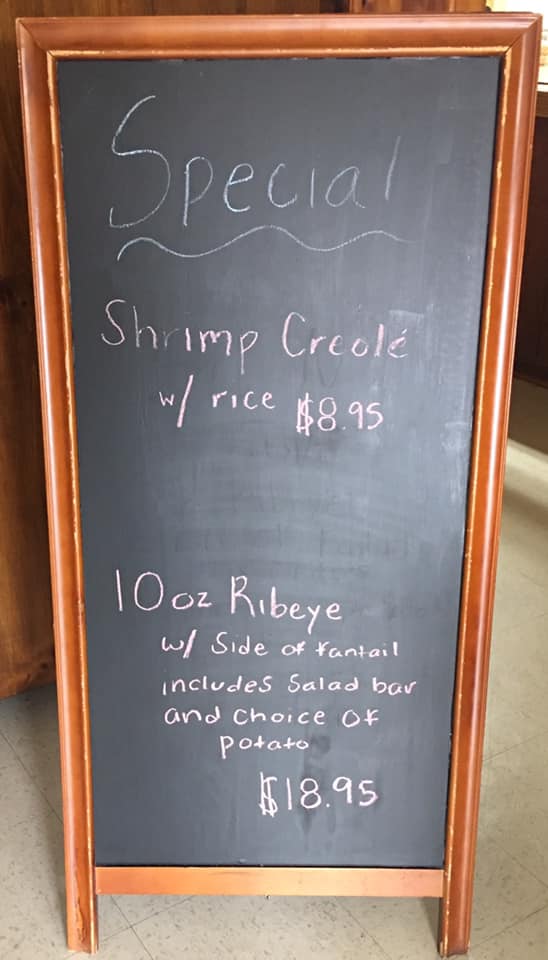 Special
Shrimp Creolé
w/ rice $8.95
10oz Ribeye
w/ Side of fantail
includes Salad bar
and choice of
potato
$18.95